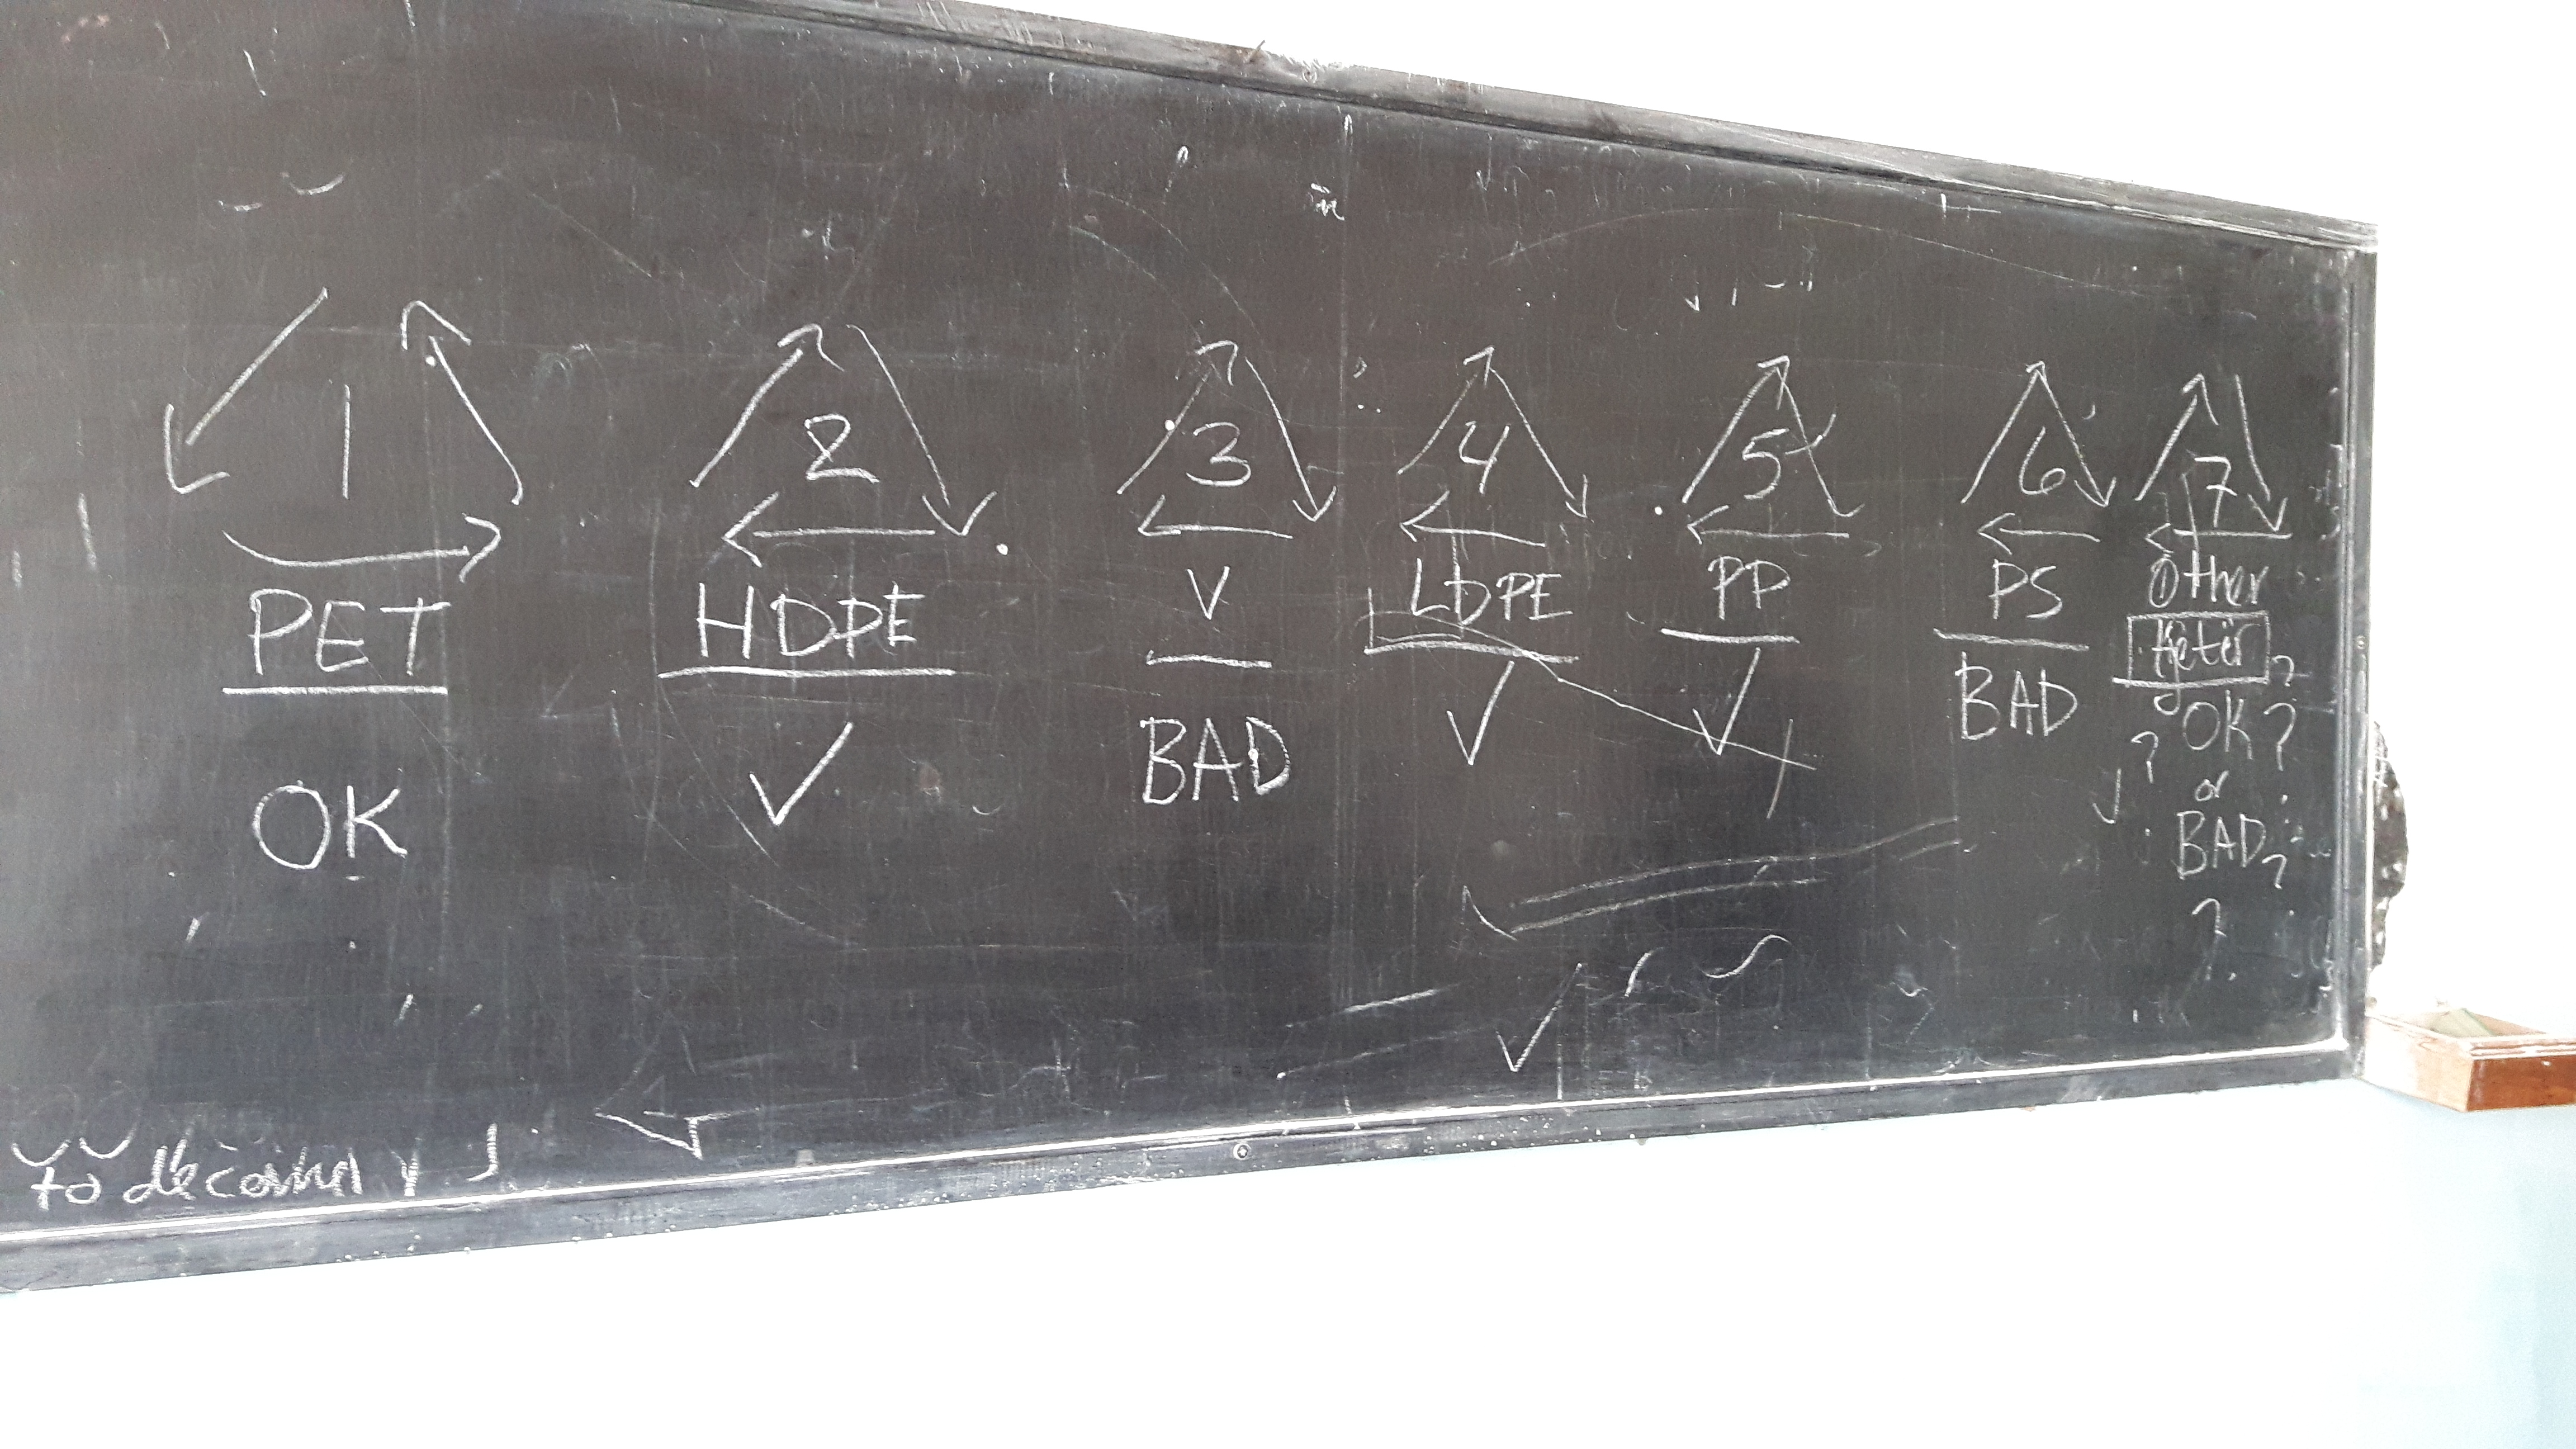 1 2 3 4 5 6 7
PET HDPE V LDPE PP PS Other
OK ✓ BAD ✓ ✓ BAD OK?
or
BAD?
?
to